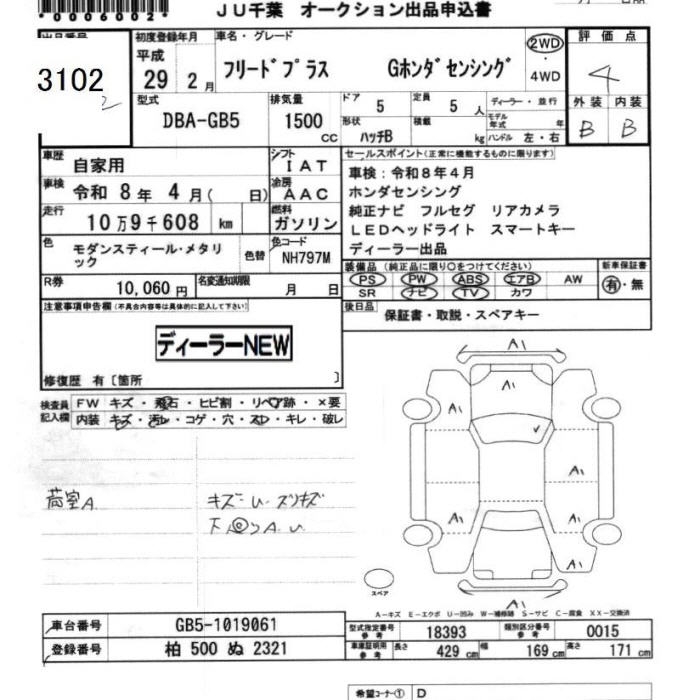 *0006002*
JU千葉 オークション出品申込書
出品番号
3102
2
初度登録年月
平成
29 2月
車名・グレード
フリードプラス Gホンダセンシング
2WD
・
4WD
評価点
4
外装 内装
B B
型式
DBA-GB5
排気量
1500 CC
ドア 5
定員 5 人
ディーラー・並行
形状 ハッチB
積載 kg
モデル年式 年
ハンドル 左・右
車歴 自家用
シフト IAT
車検 令和 8年 4月( 日)
冷房 AAC
走行 10万9千608 km
燃料 ガソリン
色 モダンスティール・メタリック
色替
色コード NH797M
R券 10,060円
名変通知期限 月 日
セールスポイント(正常に機能するものに限ります)
車検:令和8年4月
ホンダセンシング
純正ナビ フルセグ リアカメラ
LEDヘッドライト スマートキー
ディーラー出品
装備品(純正品に限り○をつけてください)
新車保証書
PS PW ABS エアB AW
SR ナビ TV カワ
有・無
後日品 保証書・取説・スペアキー
注意事項申告欄(不具合内容等は具体的に記入して下さい)
ディーラーNEW
修復歴 有〔箇所 〕
検査員記入欄
FW キズ・飛石・ヒビ割・リペア跡・×要
内装 キズ・汚レ・コゲ・穴・スレ・キレ・破レ
荷室A
キズ-U スリキズ
A1
A1
A1
A1
A1
A1
A1
A1
スペア
A-キズ E-エクボ U-凹み W-補修跡 S-サビ C-腐食 XX-交換済
車台番号 GB5-1019061
登録番号 柏 500 ぬ 2321
型式指定番号 参考 18393
類別区分番号 参考 0015
車庫証明用 参考 長さ 429 cm 幅 169 cm 高さ 171 cm
希望コーナー① D